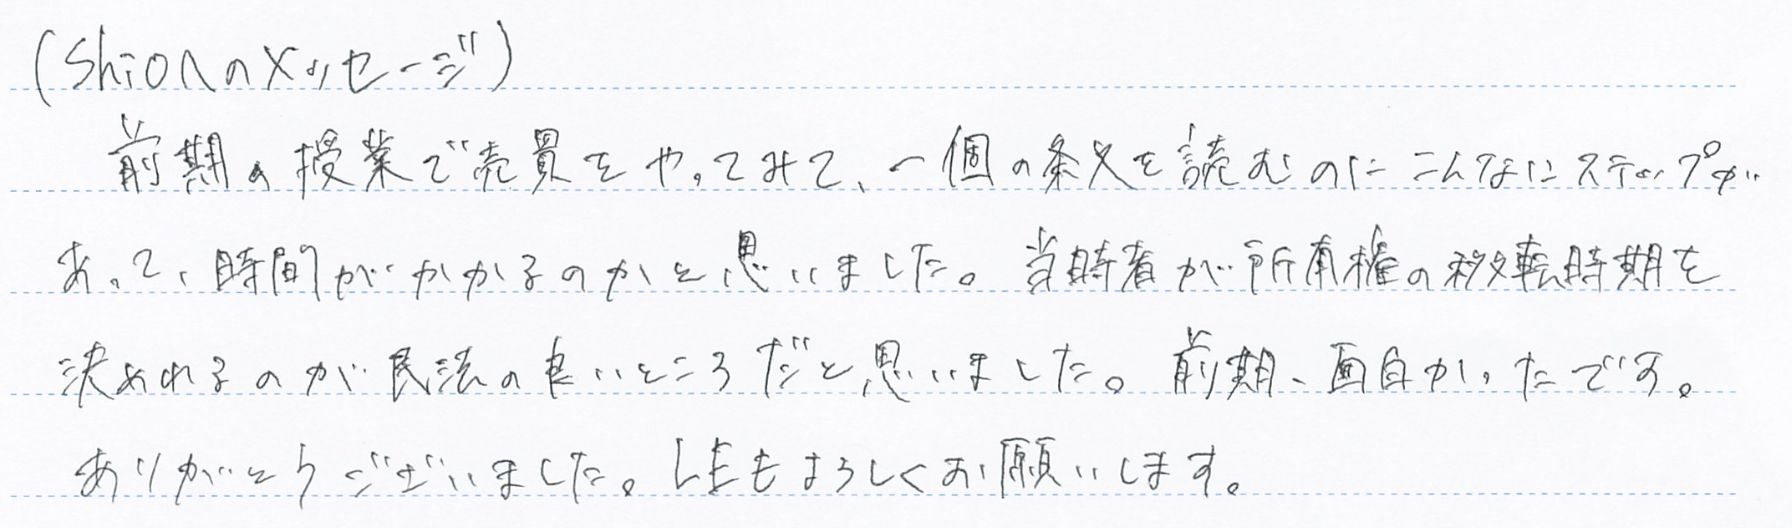 (Shioへのメッセージ)
前期の授業で売買をやってみて、一個の条文を読むのにこんなにステップが
あって、時間がかかるのかと思いました。当時者が所有権の移転時期を
決めれるのが民法の良いところだと思いました。前期、面白かったです。
ありがとうございました。LEもよろしくお願いします。